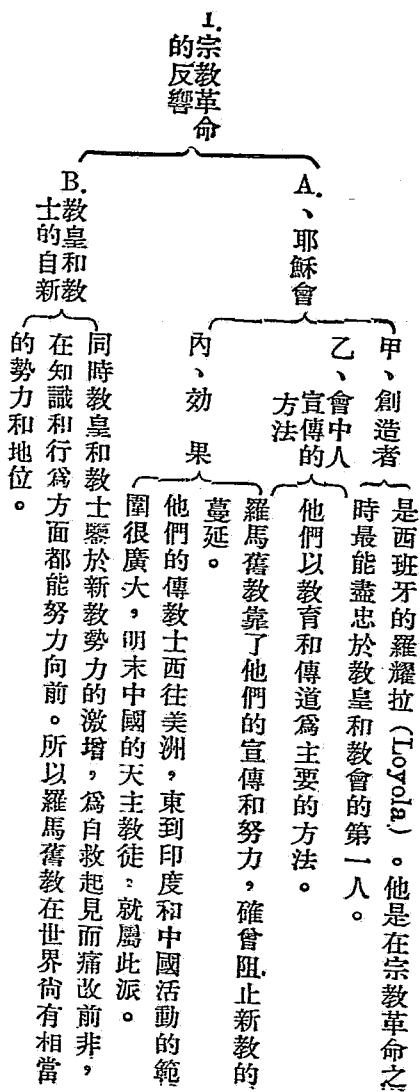 1.宗教革命
的反響
A.、耶穌會
甲、創造者
是西班牙的羅耀拉(Loyola.)。他是在宗教革命之
時最能盡忠於教皇和教會的第一人。
乙、會中人
宣傳的
方法
他們以教育和傳道爲主要的方法。
丙、効果
羅馬舊教靠了他們的宣傳和努力，確曾阻止新教的
蔓延。
他們的傳教士西往美洲，東到印度和中國活動的範
圍很廣大，明末中國的天主教徒，就屬此派。
B.教皇和教
士的自新
同時教皇和教士鑒於新教勢力的激增，爲自救起見而痛改前非，
在知識和行爲方面都能努力向前。所以羅馬舊教在世界尙有相當
的勢力和地位。